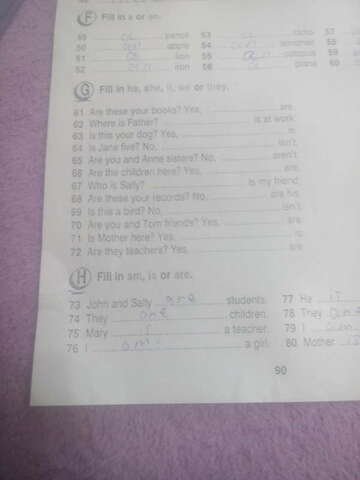 F Fill in a or an.
49 a pencil 53 a 57
50 an apple 54 55
51 a lion 55
52 an iron 56 a piano 60
G Fill in he, she, it, we or they.
61 Are these your books? Yes, are.
62 Where is Father? is at work.
63 Is this your dog? Yes, is.
64 Is Jane five? No, isn't.
65 Are you and Anne sisters? No, aren't.
66 Are the children here? Yes, are.
67 Who is Sally? is my friend.
68 Are these your records? No, are his.
69 Is this a bird? No, isn't.
70 Are you and Tom friends? Yes, are.
71 Is Mother here? Yes, is.
72 Are they teachers? Yes, are.
H Fill in am, is or are.
73 John and Sally are students. 77 He
74 They are children. 78 They
75 Mary a teacher. 79 I
76 I am a girl. 80 Mother
90